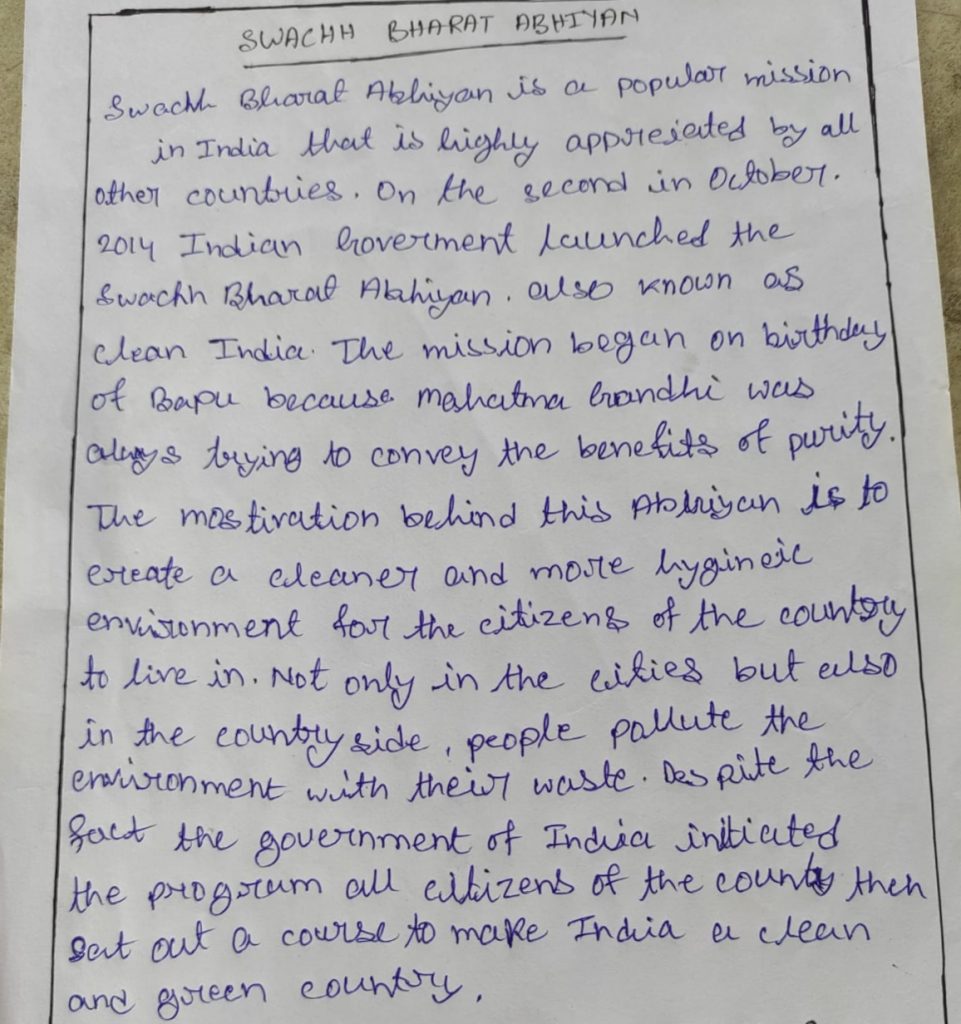 SWACHH BHARAT ABHIYAN
Swachh Bharat Abhiyan is a popular mission
in India that is highly appreciated by all
other countries. On the second in October.
2014 Indian Goverment launched the
Swachh Bharat Abhiyan. also known as
clean India. The mission began on birthday
of Bapu because mahatma Gandhi was
always trying to convey the benefits of purity.
The mostivation behind this Abhiyan is to
create a cleaner and more hygineic
environment for the citizens of the country
to live in. Not only in the cities but also
in the country side, people pollute the
environment with their waste. Despite the
fact the government of India initiated
the program all citizens of the county then
set out a course to make India a clean
and green country.